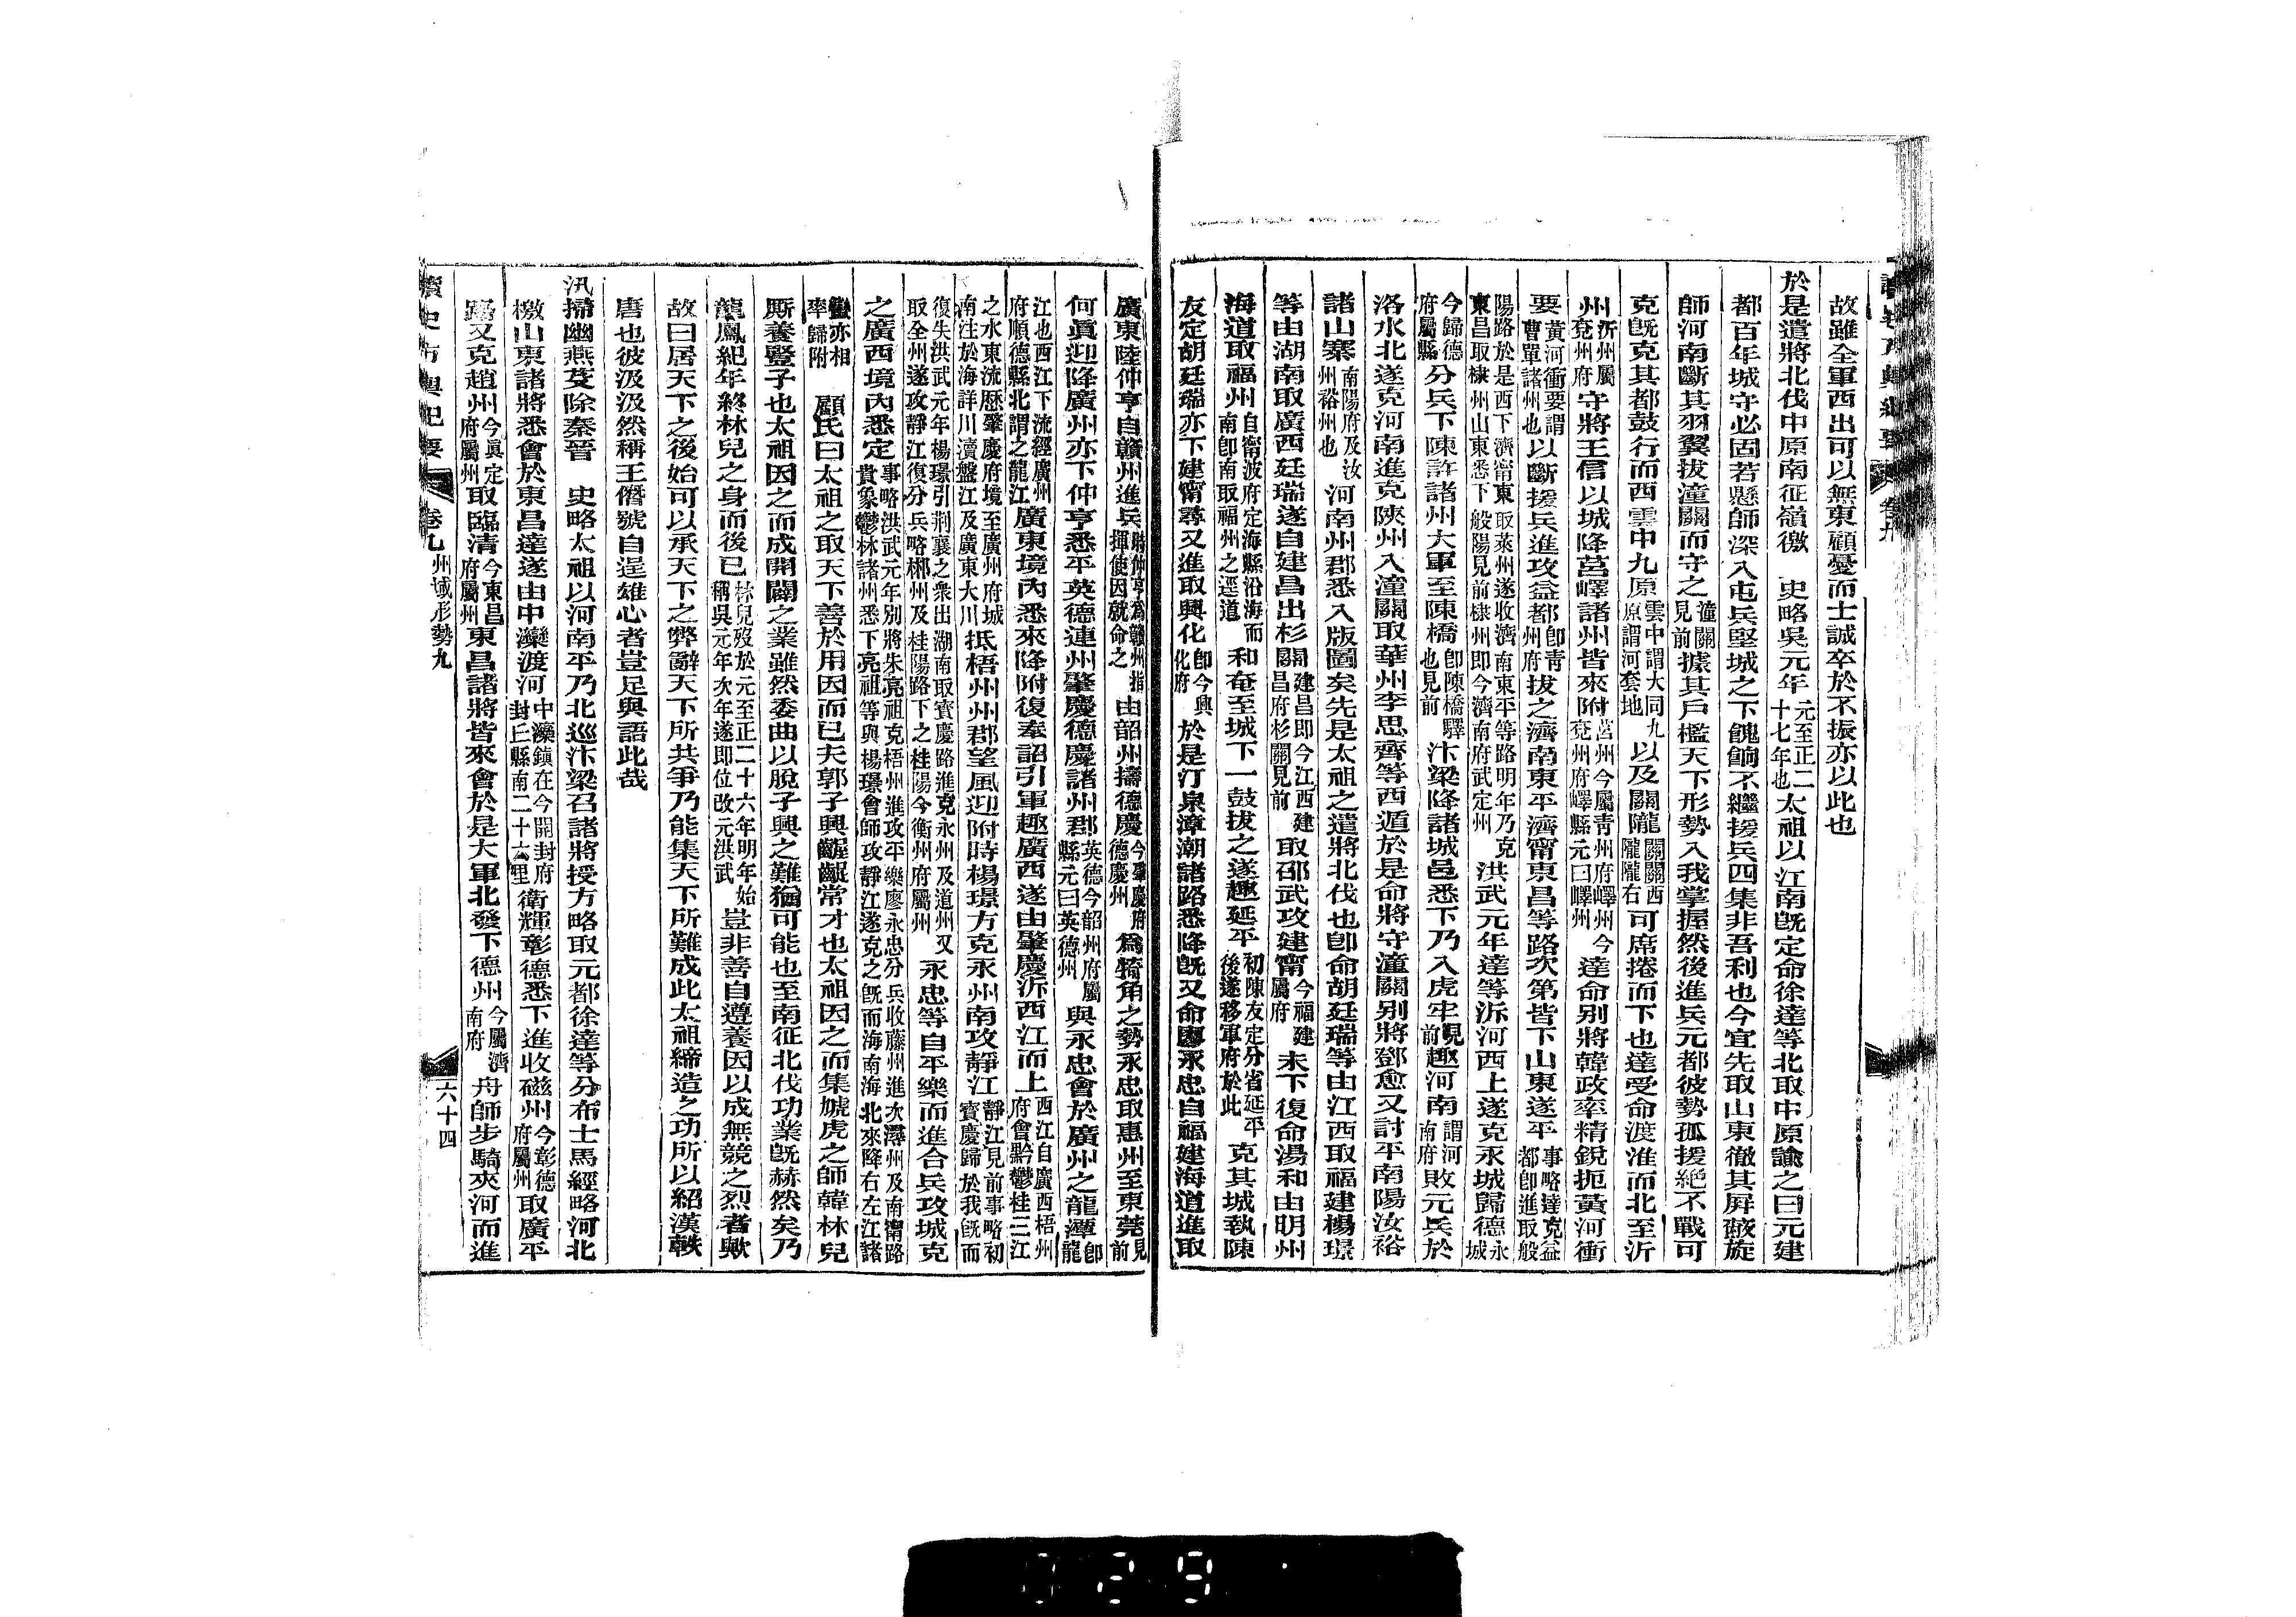 故雖全軍西出可以無東顧憂而士誠卒於不振亦以此也
於是遣將北伐中原南征嶺徼 史略吳元年元至正二十七年也太祖以江南既定命徐達等北取中原諭之曰元建
都百年城守必固若懸師深入屯兵堅城之下餽餉不繼援兵四集非吾利也今宜先取山東徹其屏蔽旋
師河南斷其羽翼拔潼關而守之潼關見前據其戶檻天下形勢入我掌握然後進兵元都彼勢孤援絕不戰可
克既克其都鼓行而西雲中九原雲中謂大同九原謂河套地以及關隴關關西隴隴右可席捲而下也達受命渡淮而北至沂
州沂州屬兗州府守將王信以城降莒嶧諸州皆來附莒州今屬青州府嶧州今兗州府嶧縣元曰嶧州達命別將韓政率精銳扼黃河衝
要黃河衝要謂曹單諸州也以斷援兵進攻益都即青州府拔之濟南東平濟甯東昌等路次第皆下山東遂平事略達克益都即進取般
陽路於是西下濟甯東取萊州遂收濟南東平等路明年乃克東昌取棣州山東悉下般陽見前棣州即今濟南府武定州洪武元年達等沂河西上遂克永城歸德永城
今歸德府屬縣分兵下陳許諸州大軍至陳橋即陳橋驛也見前汴梁降諸城邑悉下乃入虎牢見前趣河南謂河南府敗元兵於
洛水北遂克河南進克陝州入潼關取華州李思齊等西遁於是命將守潼關別將鄧愈又討平南陽汝裕
諸山寨南陽府及汝州裕州也河南州郡悉入版圖矣先是太祖之遣將北伐也卽命胡廷瑞等由江西取福建楊璟
等由湖南取廣西廷瑞遂自建昌出杉關建昌即今江西建昌府杉關見前取邵武攻建甯今福建屬府未下復命湯和由明州
海道取福州自甯波府定海縣沿海而南卽南取福州之逕道和奄至城下一鼓拔之遂趣延平初陳友定分省延平後遂移軍府於此克其城執陳
友定胡廷瑞亦下建甯尋又進取興化卽今興化府於是汀泉漳潮諸路悉降既又命廖永忠自福建海道進取
廣東陸仲亨自贛州進兵時仲亨爲贛州指揮使因就命之由韶州擣德慶今肇慶府德慶州爲犄角之勢永忠取惠州至東莞見前
何眞迎降廣州亦下仲亨悉平英德連州肇慶德慶諸州郡英德今韶州府屬縣元曰英德州與永忠會於廣州之龍潭卽龍
江也西江下流經廣州府順德縣北謂之龍江廣東境內悉來降附復奉詔引軍趣廣西遂由肇慶沂西江而上西江自廣西梧州府會黔鬱桂三江
之水東流歷肇慶府境至廣州府城南注於海詳川瀆盤江及廣東大川抵梧州州郡望風迎附時楊璟方克永州南攻靜江靜江見前事略初寶慶歸於我既而
復失洪武元年楊璟引荆襄之衆出湖南取寶慶路進克永州及道州又取全州遂攻靜江復分兵略郴州及桂陽路下之桂陽今衡州府屬州永忠等自平樂而進合兵攻城克
之廣西境內悉定事略洪武元年別將朱亮祖克梧州進攻平樂廖永忠分兵收藤州進次潯州及南甯路貴象鬱林諸州悉下亮祖等與楊璟會師攻靜江遂克之既而海南海北來降右左江諸
蠻亦相率歸附 顧氏曰太祖之取天下善於用因而已夫郭子興齷齪常才也太祖因之而集虓虎之師韓林兒
厮養豎子也太祖因之而成開闢之業雖然委曲以脫子興之難猶可能也至南征北伐功業既赫然矣乃
龍鳳紀年終林兒之身而後已林兒歿於元至正二十六年明年始稱吳元年次年遂即位改元洪武豈非善自遵養因以成無競之烈者歟
故曰居天下之後始可以承天下之弊辭天下所共爭乃能集天下所難成此太祖締造之功所以紹漢軼
唐也彼汲汲然稱王僭號自逞雄心者豈足與語此哉
汛掃幽燕芟除秦晉 史略太祖以河南平乃北巡汴梁召諸將授方略取元都徐達等分布士馬經略河北
檄山東諸將悉會於東昌達遂由中灤渡河中灤鎮在今開封府封丘縣南二十六里衛輝彰德悉下進收磁州今彰德府屬州取廣平
路又克趙州今眞定府屬州取臨清今東昌府屬州東昌諸將皆來會於是大軍北發下德州今屬濟南府舟師步騎夾河而進
讀史方輿紀要 卷九 州域形勢九 六十四